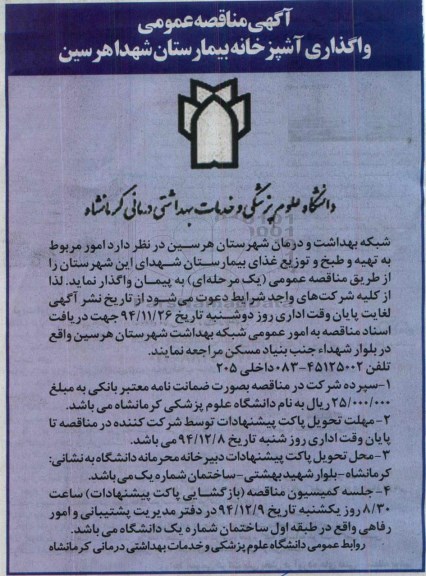 آگهی مناقصه عمومی
واگذاری آشپزخانه بیمارستان شهدا هرسین
دانشگاه علوم پزشکی و خدمات بهداشتی درمانی کرمانشاه
شبکه بهداشت و درمان شهرستان هرسین در نظر دارد امور مربوط
به تهیه و طبخ و توزیع غذای بیمارستان شهدای این شهرستان را
از طریق مناقصه عمومی (یک مرحله‌ای) به پیمان واگذار نماید. لذا
از کلیه شرکت‌های واجد شرایط دعوت می‌شود از تاریخ نشر آگهی
لغایت پایان وقت اداری روز دوشنبه تاریخ ۹۴/۱۱/۲۶ جهت دریافت
اسناد مناقصه به امور عمومی شبکه بهداشت شهرستان هرسین واقع
در بلوار شهداء جنب بنیاد مسکن مراجعه نمایند.
تلفن ۴۵۱۲۵۰۰۲-۰۸۳ داخلی ۲۰۵
۱-سپرده شرکت در مناقصه بصورت ضمانت نامه معتبر بانکی به مبلغ
۲۵/۰۰۰/۰۰۰ ریال به نام دانشگاه علوم پزشکی کرمانشاه می باشد.
۲-مهلت تحویل پاکت پیشنهادات توسط شرکت کننده در مناقصه تا
پایان وقت اداری روز شنبه تاریخ ۹۴/۱۲/۸ می باشد.
۳-محل تحویل پاکت پیشنهادات دبیرخانه محرمانه دانشگاه به نشانی:
کرمانشاه-بلوار شهید بهشتی-ساختمان شماره یک می باشد.
۴-جلسه کمیسیون مناقصه (بازگشایی پاکت پیشنهادات) ساعت
۸/۳۰ روز یکشنبه تاریخ ۹۴/۱۲/۹ در دفتر مدیریت پشتیبانی و امور
رفاهی واقع در طبقه اول ساختمان شماره یک دانشگاه می باشد.
روابط عمومی دانشگاه علوم پزشکی و خدمات بهداشتی درمانی کرمانشاه